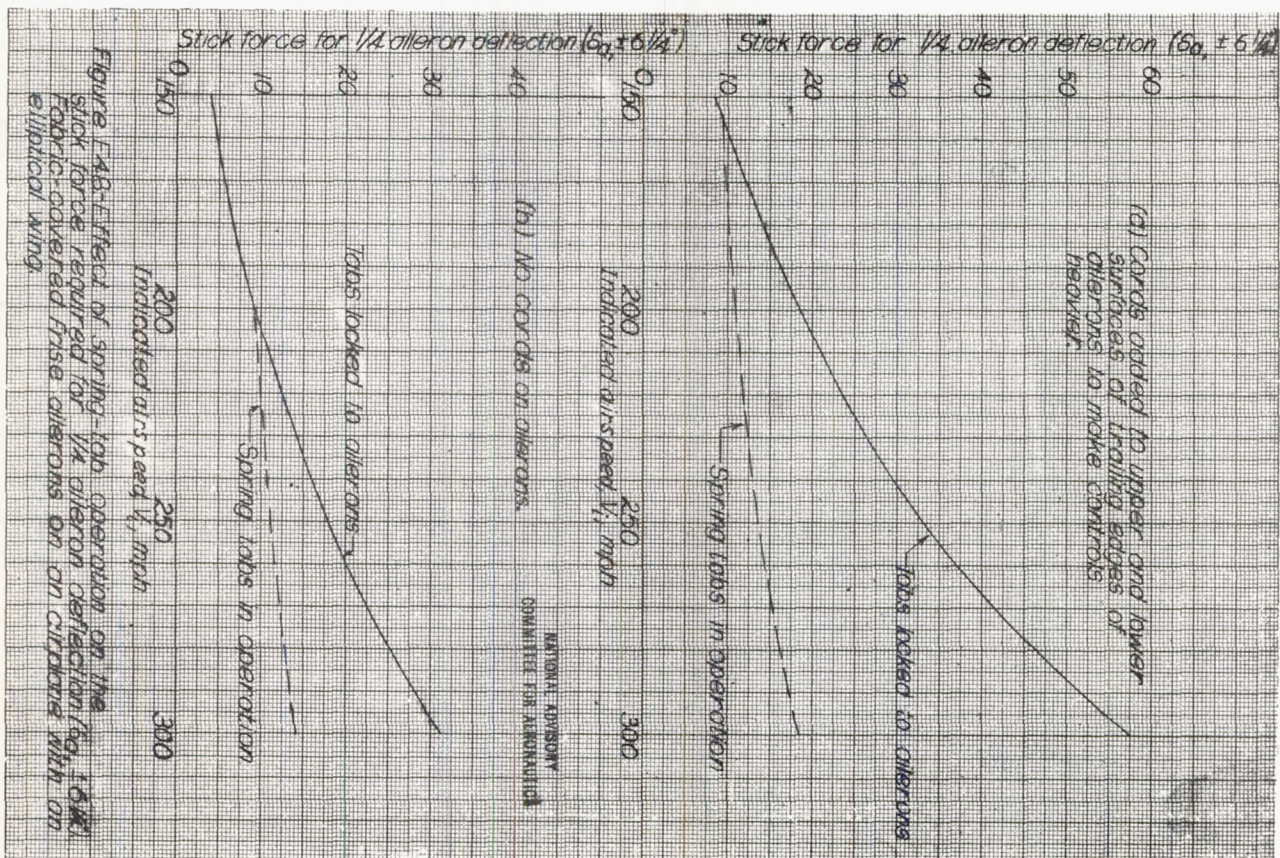 Stick force for 1/4 aileron deflection (δa, ± 6 1/4°)
60
50
40
30
20
10
0
(a) Cords added to upper and lower
surfaces of trailing edges of
ailerons to make controls
heavier.
Tabs locked to ailerons
Spring tabs in operation
150
200
250
300
Indicated airspeed, Vi, mph
NATIONAL ADVISORY
COMMITTEE FOR AERONAUTICS
Stick force for 1/4 aileron deflection (δa, ± 6 1/4°)
40
30
20
10
0
(b) No cords on ailerons.
Tabs locked to ailerons
Spring tabs in operation
150
200
250
300
Indicated airspeed, Vi, mph
Effect of spring-tab operation on the
stick force required for 1/4 aileron deflection
fabric-covered frise ailerons on an airplane with an
elliptical wing.